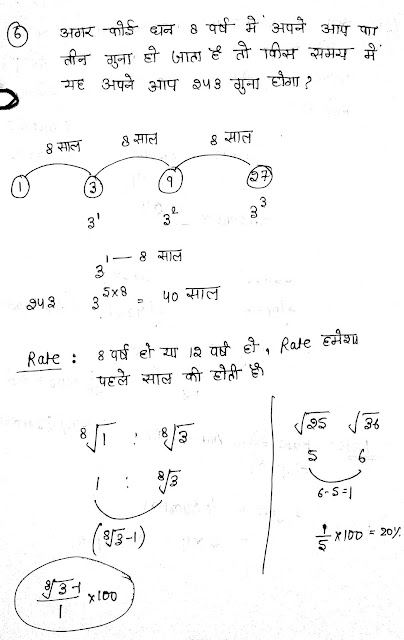 6 अगर कोई धन 8 वर्ष में अपने आप का
तीन गुना हो जाता है तो किस समय में
यह अपने आप २५३ गुना होगा ?
8 साल 8 साल 8 साल
1 3 9 27
3^1 3^2 3^3
3^1 — 8 साल
२५३ 3^{5×8} = 40 साल
Rate : 8 वर्ष हो या 12 वर्ष हो, Rate हमेशा
पहले साल की होती है।
⁸√1 : ⁸√3
1 : ⁸√3
(⁸√3-1)
⁸√3-1/1 ×100
√25 √36
5 6
6-5=1
1/5 ×100 = 20%